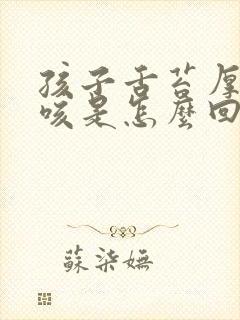 孩子舌苔厚
咳是怎麼回
蘇柒嫵